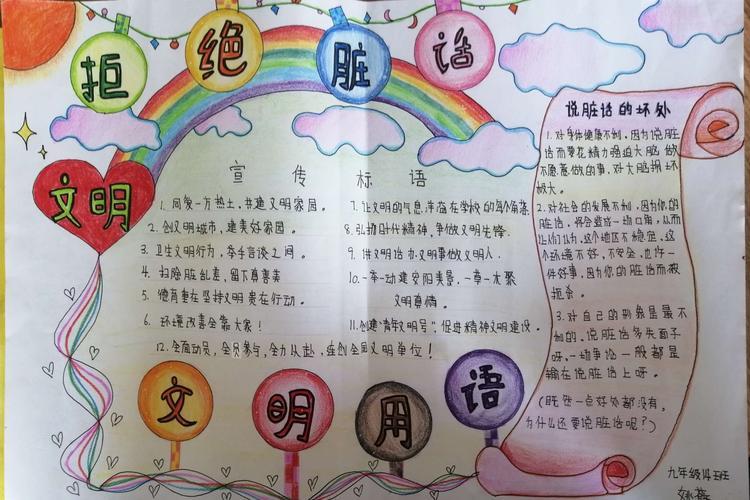 拒绝脏话
文明
宣传标语
1. 同爱一方热土,共建文明家园。
2. 创文明城市,建美好家园。
3. 卫生文明行为,举手言谈之间。
4. 扫除脏乱差,留下真善美
5. 德育重在坚持文明贵在行动。
6. 环境改善全靠大家!
7. 让文明的气息洋溢在学校的每个角落
8. 弘扬时代精神,争做文明先锋.
9. 讲文明话办文明事做文明人.
10. 一举一动建安阳美景,一草一木聚
文明真情。
11. 创建"青年文明号",促进精神文明建设。
12. 全面动员,全员参与,全力以赴,连创全国文明单位!
文明用语
说脏话的坏处
1. 对身体健康不利,因为说脏
话而要花精力强迫大脑做
不愿意做的事,对大脑损坏
极大。
2. 对社会的发展不利,因为你的
脏话,将会造成一场口角,从而
让人们认为,这个地区不稳定,这
个环境不好,不安全,也许一
件好事,因为你的脏话而被
扼杀。
3. 对自己的形象是最不
利的,说脏话多失面子
呀,一场争论一般都是
输在说脏话上呀。
(既然一点好处都没有,
为什么还要说脏话呢?)
九年级14班